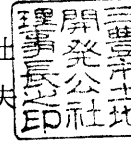 三豊市土地
開発公社
理事長之印
夫